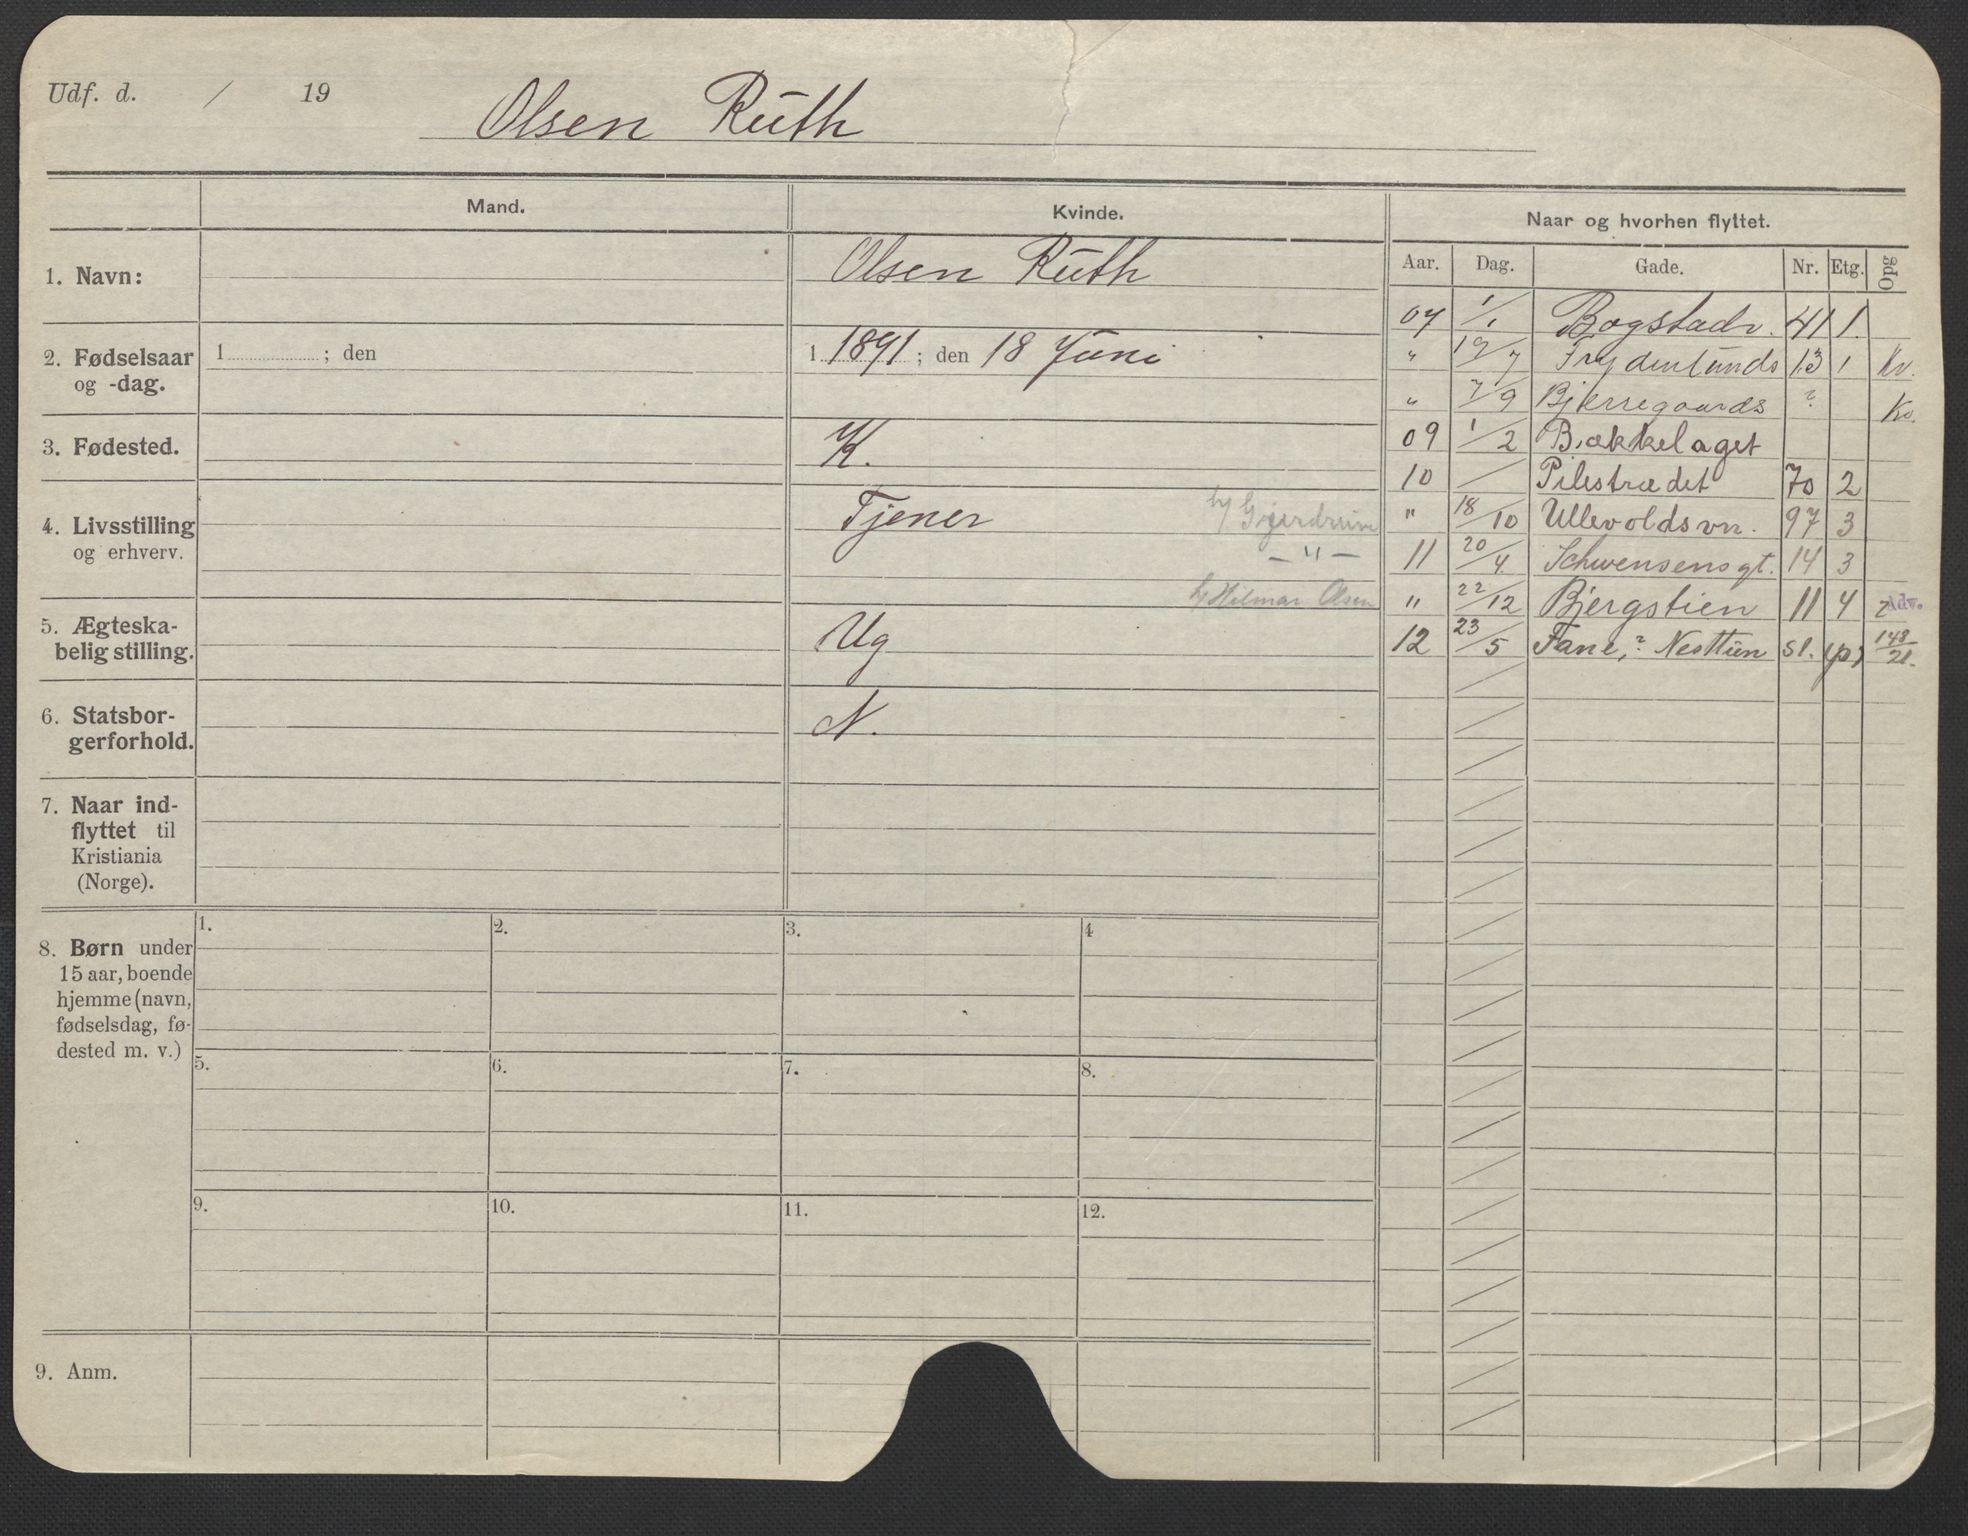 Udf. d. / 19
Olsen Ruth
Mand.
Kvinde.
Naar og hvorhen flyttet.
Aar. Dag. Gade. Nr. Etg. Opg
1. Navn:
Olsen Ruth
2. Fødselsaar
og -dag.
1 ; den
1 1891 ; den 18 Juni
3. Fødested.
K.
4. Livsstilling
og erhverv.
Tjener
— " —
h/ Hilmar Olsen
5. Ægteska-
belig stilling.
Ug
6. Statsbor-
gerforhold.
N.
7. Naar ind-
flyttet til
Kristiania
(Norge).
8. Børn under
15 aar, boende
hjemme (navn,
fødselsdag, fø-
dested m. v.)
1. 2. 3. 4
5. 6. 7. 8.
9. 10. 11. 12.
9. Anm.
07 1/1 Bogstadv. 41 1.
" 19/7 Frydenlunds 13 1 Kv.
" 7/9 Bjerregaards ? Kv.
09 1/2 Bækkelaget
10 / Pilestrædet 70 2
" 18/10 Ullevoldsvn. 97 3
11 20/4 Schwensensgt. 14 3
" 22/12 Bjergstien 11 4 Adv.
12 23/5 Fane, ? Nesttun Sl. (p) 148/21.